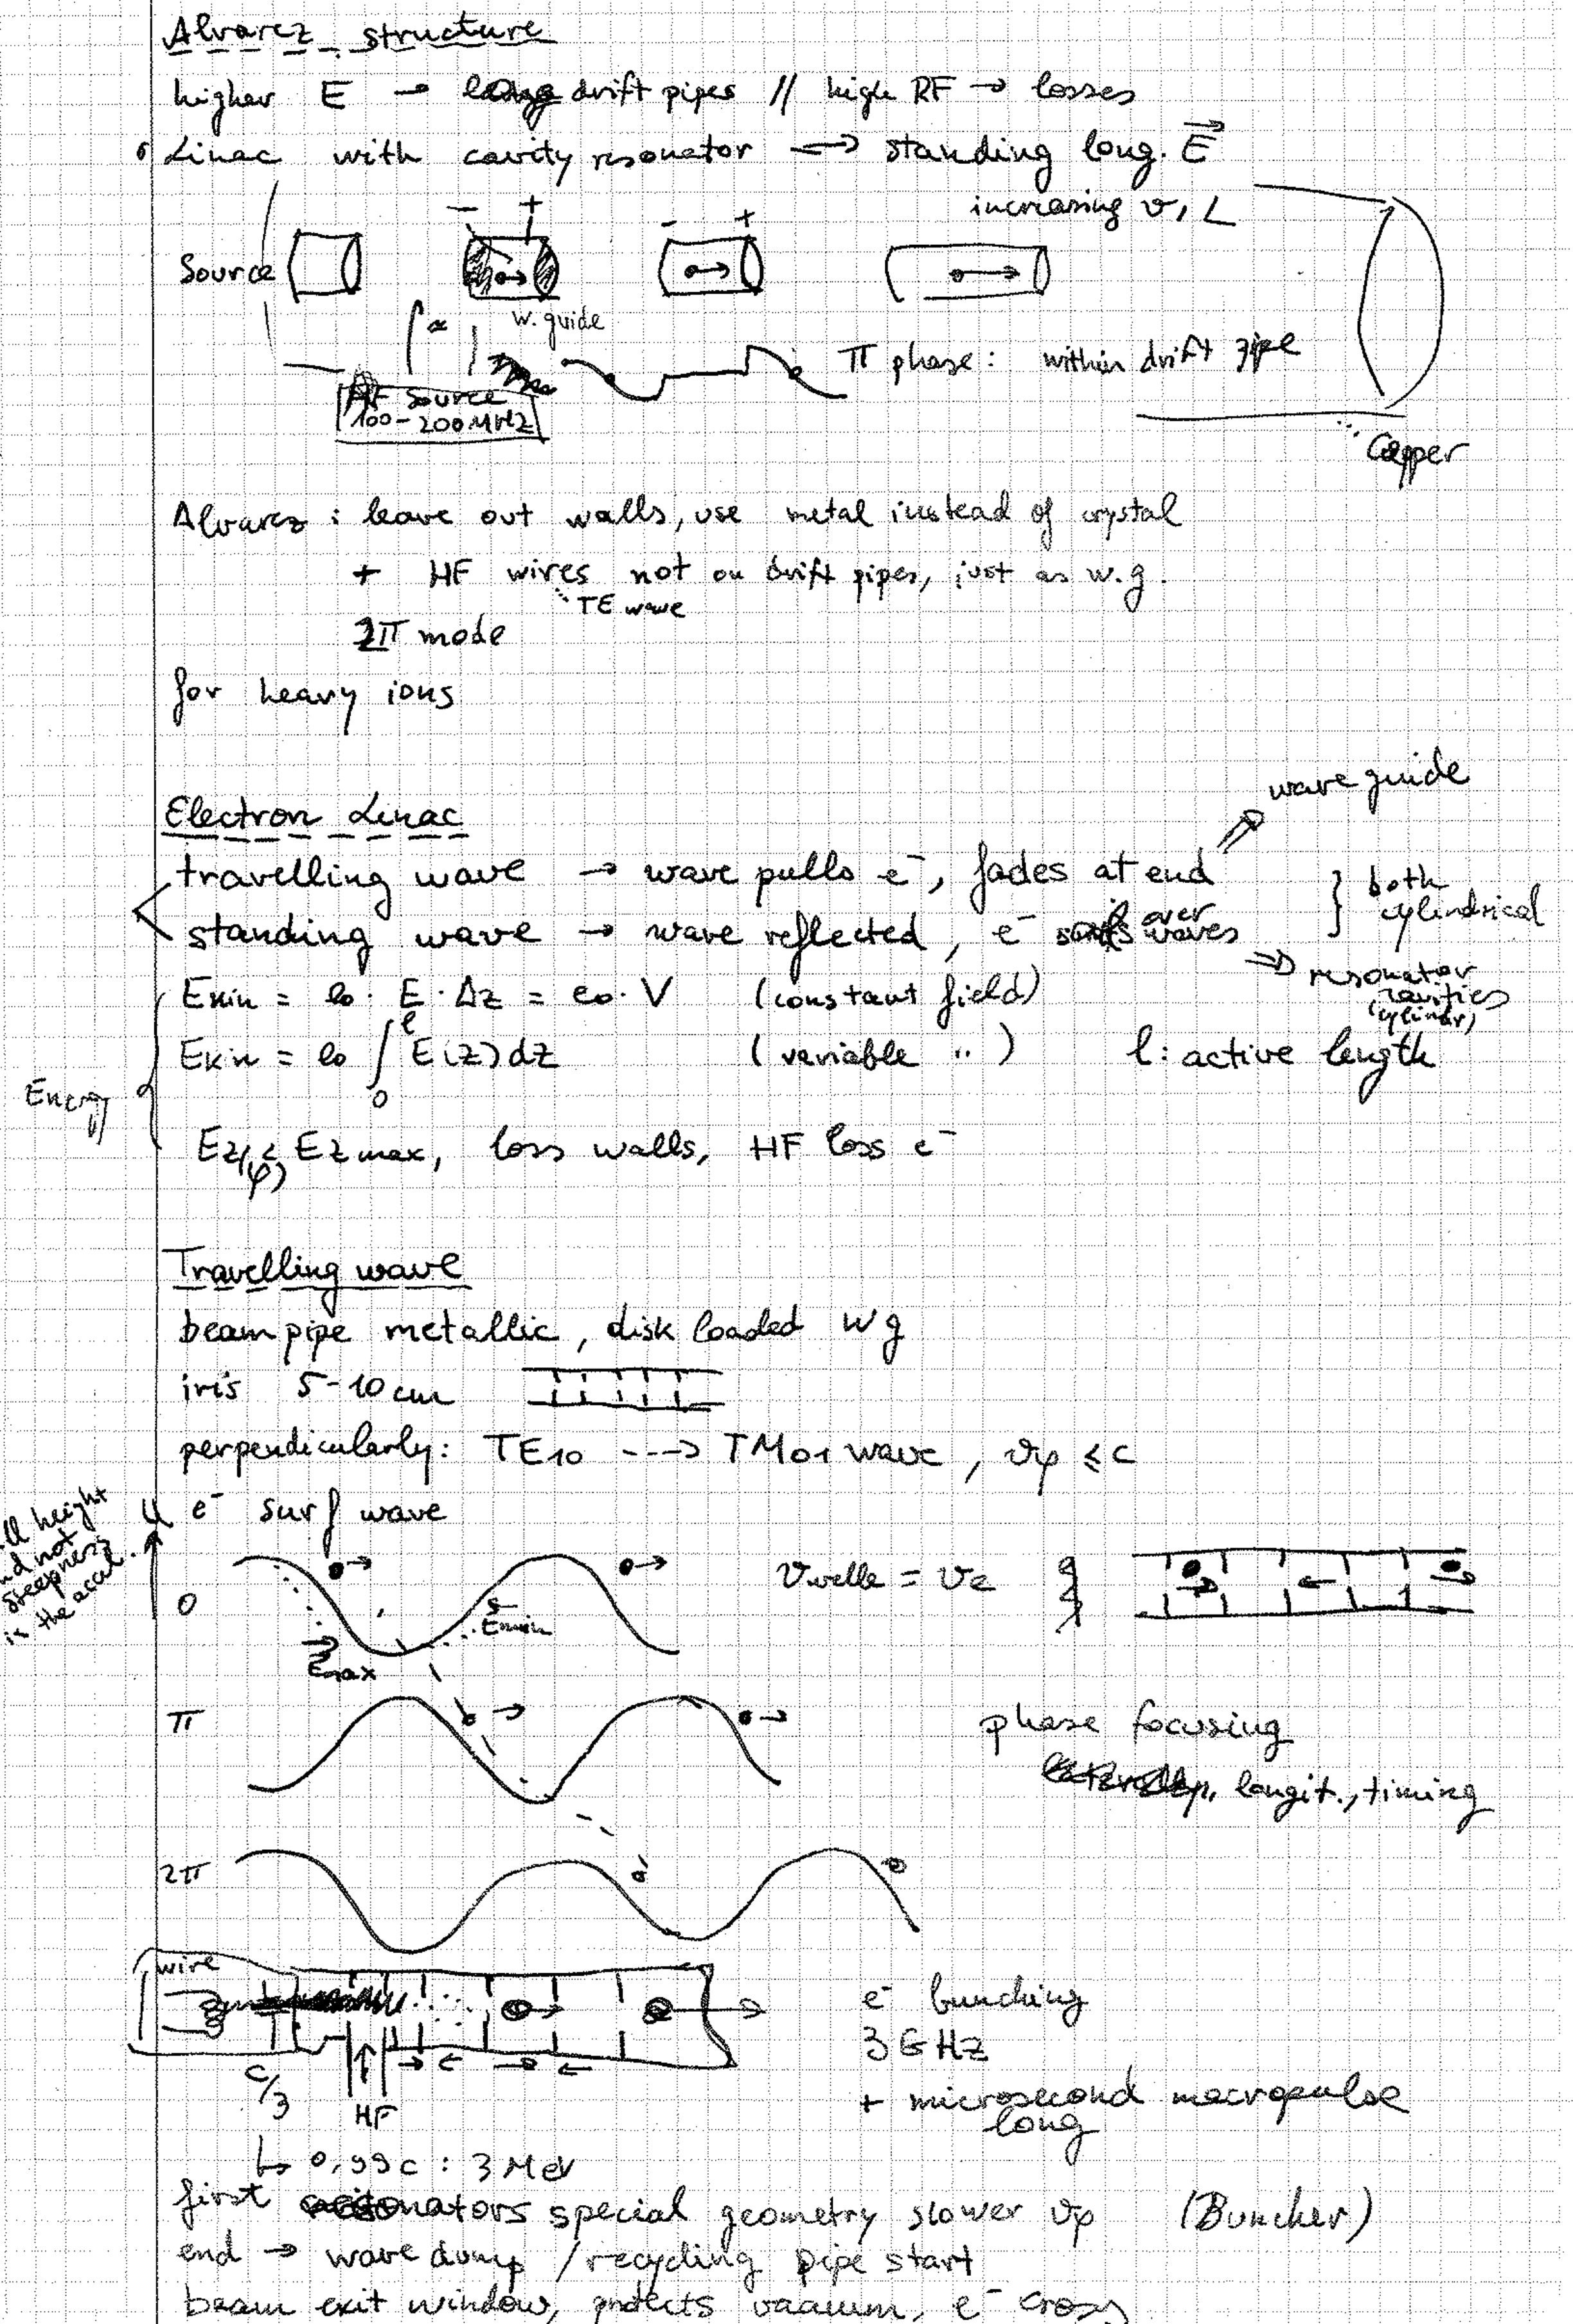 Alvarez structure
higher E → long drift pipes // high RF → losses
Linac with cavity resonator → standing long. E
increasing v, L
- + - +
Source
w. guide
π phase: within drift pipe
RF source
100-200 MHz
Copper
Alvarez: leave out walls, use metal instead of crystal
+ HF wires not on drift pipes, just as w.g.
TE wave
2π mode
for heavy ions
wave guide
Electron Linac
travelling wave → wave pulls e⁻, fades at end
both
cylindrical
standing wave → wave reflected, e⁻ surfs over waves
⇒ resonator
cavities
(cylindr)
Ekin = e₀ · E · Δz = e₀ · V (constant field)
Ekin = e₀ ∫₀ˡ E(z) dz (variable ..) l: active length
Energy
Ez(φ) < Ez max, loss walls, HF loss e⁻
Travelling wave
beam pipe metallic, disk loaded wg
iris 5-10 cm
perpendicularly: TE10 ---> TM01 wave, vφ ≤ c
e⁻ surf wave
height
not
steepness
is the accel.
0
Emax
Emin
vwelle = ve
π
phase focusing
longit., timing
2π
wire
e⁻ bunching
3 GHz
+ microsecond macropulse
long
c/3
HF
↳ 0,99c : 3 MeV
first resonators special geometry slower vφ (Buncher)
end → wave dump / recycling pipe start
beam exit window, protects vacuum, e⁻ cross